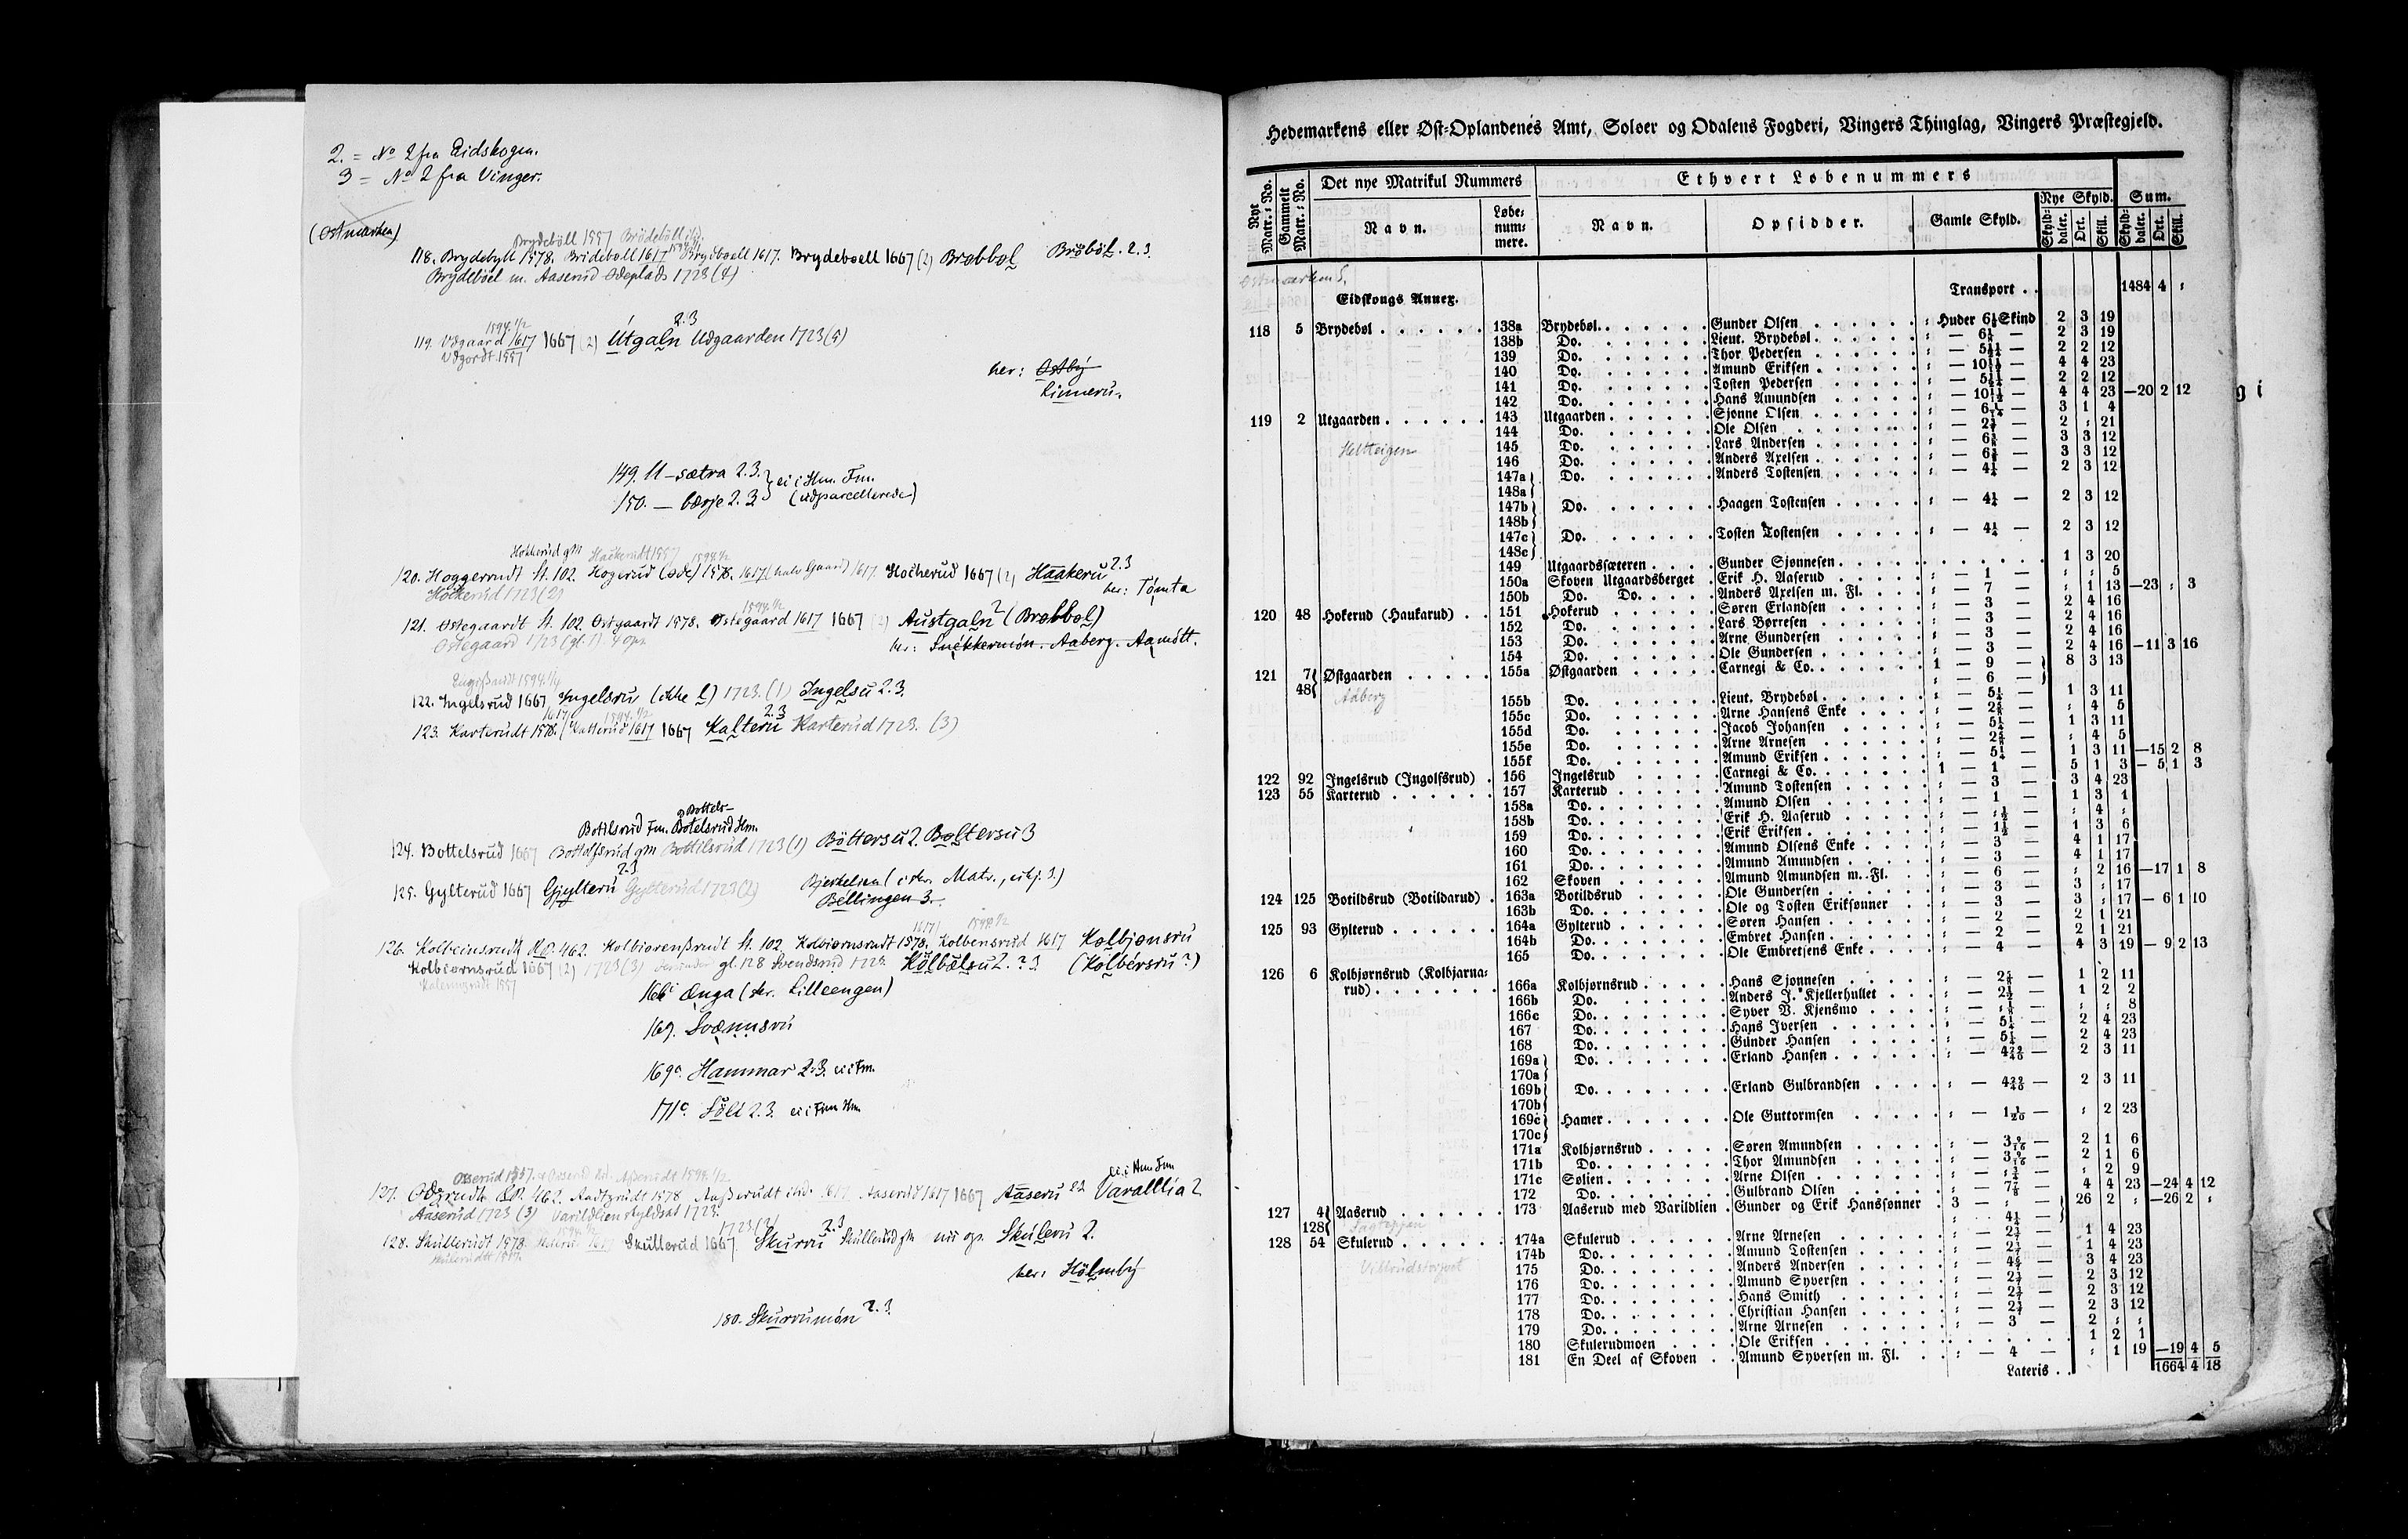 2. = No 2 fra Eidskogen.
3 = No 2 fra Vinger.
(Østmarken)
Brydeböll 1557 Brödeböll ibd.
118. Brydebyll 1578. Brideboll 1617 Brydboell 1617. Brydeboell 1667 (2) Brøbbol Brøbøl. 2.3.
Brydeböel m. Aaserud Ödeplads 1723 (4)
1594.1/2 2.3
119. Udgaard 1617 1667 (2) Utgaln Udgaarden 1723 (5)
Udgordt 1557
her: Østby
Linneru.
149. U-sætra 2.3. ei i Hm. Fm.
150. — bærje 2.3 (udparcellerede)
Hokkerud gM Hackerudt 1557 1594.1/2
120. Hoggerrudt St. 102. Hogerud (øde) 1578. 1617 (halv Gaard) 1617. Hocherud 1667 (2) Haakeru 2.3
Höckerud 1723 (2) her: Tömta
1594.1/2
121. Østegaardt St. 102. Ostgaardt 1578. Østegaard 1617 1667 (2) Austgaln 2 (Brøbbol)
Østegaard 1723 (gl. 1). 4 ops. her: Snekkermøn. Aaberg. Aamött.
122. Ingelsrud 1667 Ingelsrus (ikke l) 1723. (1) Ingelsu 2.3.
123. Karterudt 1578. (Katterud 1617 1667 Kalteru 2.3 Karterud 1723. (3)
Bottels-
Botilsrud Fm. Botelsrud Hm.
124. Bottelsrud 1667 Bottolfsrud gM Bottilsrud 1723 (1) Böttersu 2. Boltersu 3
125. Gylterud 1667 Gjylteru 2.3 Gylterud 1723 (2) Bjerkelien (i skr. Matr., ei bj. 3.)
Bellingen 3.
126. Kolbeinsrudh RB. 462. Kolbiorenßrudt St. 102. Kolbiørnsrudt 1578. Kolbensrud 1617 Kolbjønsru
Kolbiørnsrud 1667 (2) 1723 (3) gl. 128 Svendsrud 1723. Kölbælsu 2. ? 3. (Kölbérsru?)
166 i Ænga (skr. Lilleengen)
169. Svænnsru
169c. Hammar 2.3. ei i Fm.
171c. Söli 2.3. ei i Fm Hm.
ei i Hm. Fm
127. RB. 462. Aadzrudt 1578. Aaßerudt ibd. 1617. Aaserud 1617 1667 Aaseru 2.3 Varalllia 2
Aaserud 1723 (3) Varildlien skyldsat 1723.
128. Skullerudt 1578. 1617 Skullerud 1667. 1723 (3) Skurru 2.3 Skullerud gM Skúleru 2.
her: Hölmbý
180. Skurrumón 2.3
Hedemarkens eller Øst-Oplandenes Amt, Soløer og Odalens Fogderi, Vingers Thinglag, Vingers Præstegjeld.
Nye Matr.-No. Gammelt Matr.-No. Det nye Matrikul Nummers Ethvert Løbenummers
Nye Skyld. Sum.
Navn. Løbenummere. Navn. Opsidder. Gamle Skyld. Skylddaler. Ort. Skill. Skylddaler. Ort. Skill.
Østmarken S.
Eidskongs Annex. Transport . . 1484 4 :
118 5 Brydebøl 138a Brydebøl Gunder Olsen : Huder 6¼ Skind 2 3 19
138b Do. Lieut. Brydebøl : — 6¼ — 2 3 19
139 Do. Thor Pedersen 2 2 12
140 Do. Amund Eriksen 4 4 23
141 Do. Tosten Pedersen 2 2 12
142 Do. Hans Amundsen 4 4 23 —20 2 12
119 2 Utgaarden 143 Utgaarden Sjønne Olsen 3 1 4
144 Do. Ole Olsen 2 : 21
Heltteigen 145 Do. Lars Andersen 3 3 12
146 Do. Anders Axelsen 3 3 12
147a Do. Anders Tostensen : — 4¼ — 2 3 12
148a
147b Do. Haagen Tostensen : — 4¼ — 2 3 12
148b
147c Do. Tosten Tostensen : — 4¼ — 2 3 12
148c
149 Utgaardssæteren Gunder Sjønnesen 1 3 20
150a Skoven Utgaardsberget Erik H. Aaserud : — 1 — : : 5
150b Do. Do. Anders Axelsen m. Fl. : — 7 — : 1 13 —23 : 3
120 48 Hokerud (Haukarud) 151 Hokerud Søren Erlandsen : — 3 — 2 4 16
152 Do. Lars Børresen : — 3 — 2 4 16
153 Do. Arne Gundersen : — 3 — 2 4 16
154 Do. Ole Gundersen : — 3 — 2 4 16 —11 3 16
121 7 Østgaarden 155a Østgaarden Carnegi & Co. 1 — 9 — 8 3 13
48 Aaberg : — 6 —
155b Do. Lieut. Brydebøl : — 5¼ — 1 3 11
155c Do. Arne Hansens Enke : 4 5
155d Do. Jacob Johansen : — 5¼ — 1 3 11
155e Do. Arne Arnesen : 4 5
155f Do. Amund Eriksen : — 5¼ — 1 3 11 —15 2 8
122 92 Ingelsrud (Ingolfsrud) 156 Ingelsrud Carnegi & Co. 1 — 1 — 5 1 3 — 5 1 3
123 55 Karterud 157 Karterud Amund Tostensen : — 3 — 3 4 23
158a Do. Amund Olsen : — 1 — 1 3 1
158b Do. Erik H. Aaserud : — : ½ — : 4 :
159 Do. Erik Eriksen : — 1½ — 1 3 6
160 Do. Amund Olsens Enke : — 3 — 4 1 17
161 Do. Amund Amundsen : — 3 — 4 1 17
162 Skoven Amund Amundsen m. Fl. : — 6 — : 2 16 —17 1 8
124 125 Botildsrud (Botildarud) 163a Botildsrud Ole Gundersen : — 3 — 3 : 17
163b Do. Ole og Tosten Eriksønner : — 3 — 3 : 17 — 6 1 10
125 93 Gylterud 164a Gylterud Søren Hansen : — 2 — 2 1 21
164b Do. Embret Hansen : — 2 — 2 1 21
165 Do. Ole Embretsens Enke : — 4 — 4 3 19 — 9 2 13
126 6 Kolbjørnsrud (Kolbjarna-
rud) 166a Kolbjørnsrud Hans Sjønnesen 1 2 11
166b Do. Anders J. Kjellerhullet : — 2½ — 1 2 2
166c Do. Syver P. Kjensmo : : 8
167 Do. Hans Iversen : — 5¼ — 2 4 23
168 Do. Gunder Hansen : — 5¼ — 2 4 23
169a Do. Erland Hansen 2 3 11
170a
169b Do. Erland Gulbrandsen 2 3 11
170b
169c Hamer Ole Guttormsen : — 1 1/20 — : 2 23
170c
171a Kolbjørnsrud Søren Amundsen : — 3 9/16 — 2 1 6
171b Do. Thor Amundsen : — 3 9/16 — 2 1 6
171c Sølien Arne Olsen : 2 9
172 Do. Gulbrand Olsen : — 7⅞ — 4 4 23 —24 4 12
127 4 Aaserud 173 Aaserud med Varildlien Gunder og Erik Hanssønner 3 — : — 26 2 : —26 2 :
128 : — 4¼ —
128 54 Skulerud 174a Skulerud Arne Arnesen 1 4 23
174b Do. Amund Tostensen 1 4 23
175 Do. Anders Andersen 3 4 23
176 Do. Amund Syversen 2 3 12
177 Do. Hans Smith 2 3 12
178 Do. Christian Hansen 2 3 12
179 Do. Arne Arnesen : — 3 — 2 : :
180 Skulerudmoen Ole Eriksen 1 2 1
181 En Deel af Skoven Amund Syversen m. Fl. : — 4 — : 1 19 —19 4 5
Lateris . . 1664 4 18